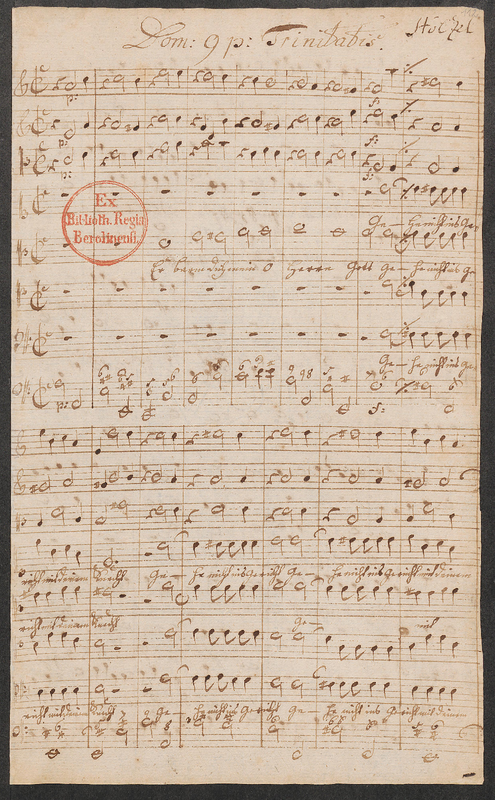 Dom: 9 p: Trinitatis.
Stölzel
p:
f:
p:
f:
p:
f:
Ex
Biblioth. Regia
Berolinensi.
Ge — he nicht ins Ge
Er barme dich mein O Herre Gott Ge — he nicht ins Ge
Ge — he nicht ins Ge
p:
f:
richt mit deinem Knecht Ge — he nicht ins Gericht Ge — he nicht ins Gericht mit deinem
richt mit deinem Knecht
Ge —
mit
richt mit deinem Knecht Ge — he nicht ins Gericht Ge — he nicht ins Gericht mit deinem